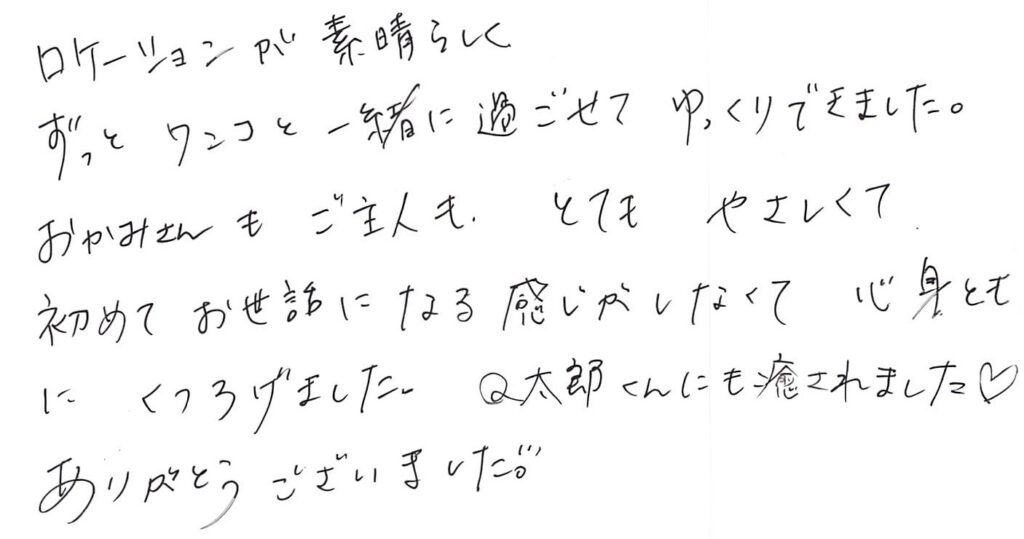 ロケーションが 素晴らしく
ずっと ワンコと 一緒に 過ごせて ゆっくりできました。
おかみさんも ご主人も、 とても やさしくて
初めて お世話に なる 感じがしなくて 心身とも
に くつろげました。 Q太郎くんにも癒されました♡
ありがとう ございました。